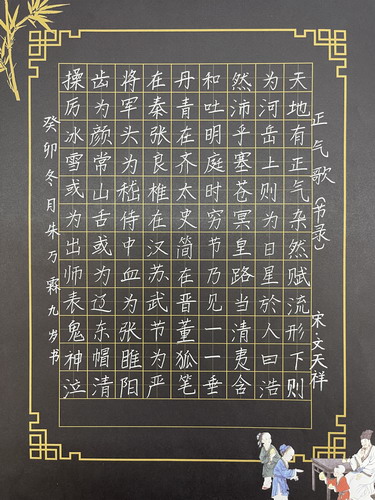 正气歌（节录） 宋·文天祥
天地有正气杂然赋流形下则
为河岳上则为日星於人曰浩
然沛乎塞苍冥皇路当清夷含
和吐明庭时穷节乃见一一垂
丹青在齐太史简在晋董狐笔
在秦张良椎在汉苏武节为严
将军头为嵇侍中血为张睢阳
齿为颜常山舌或为辽东帽清
操厉冰雪或为出师表鬼神泣
癸卯冬月朱乃霖九岁书